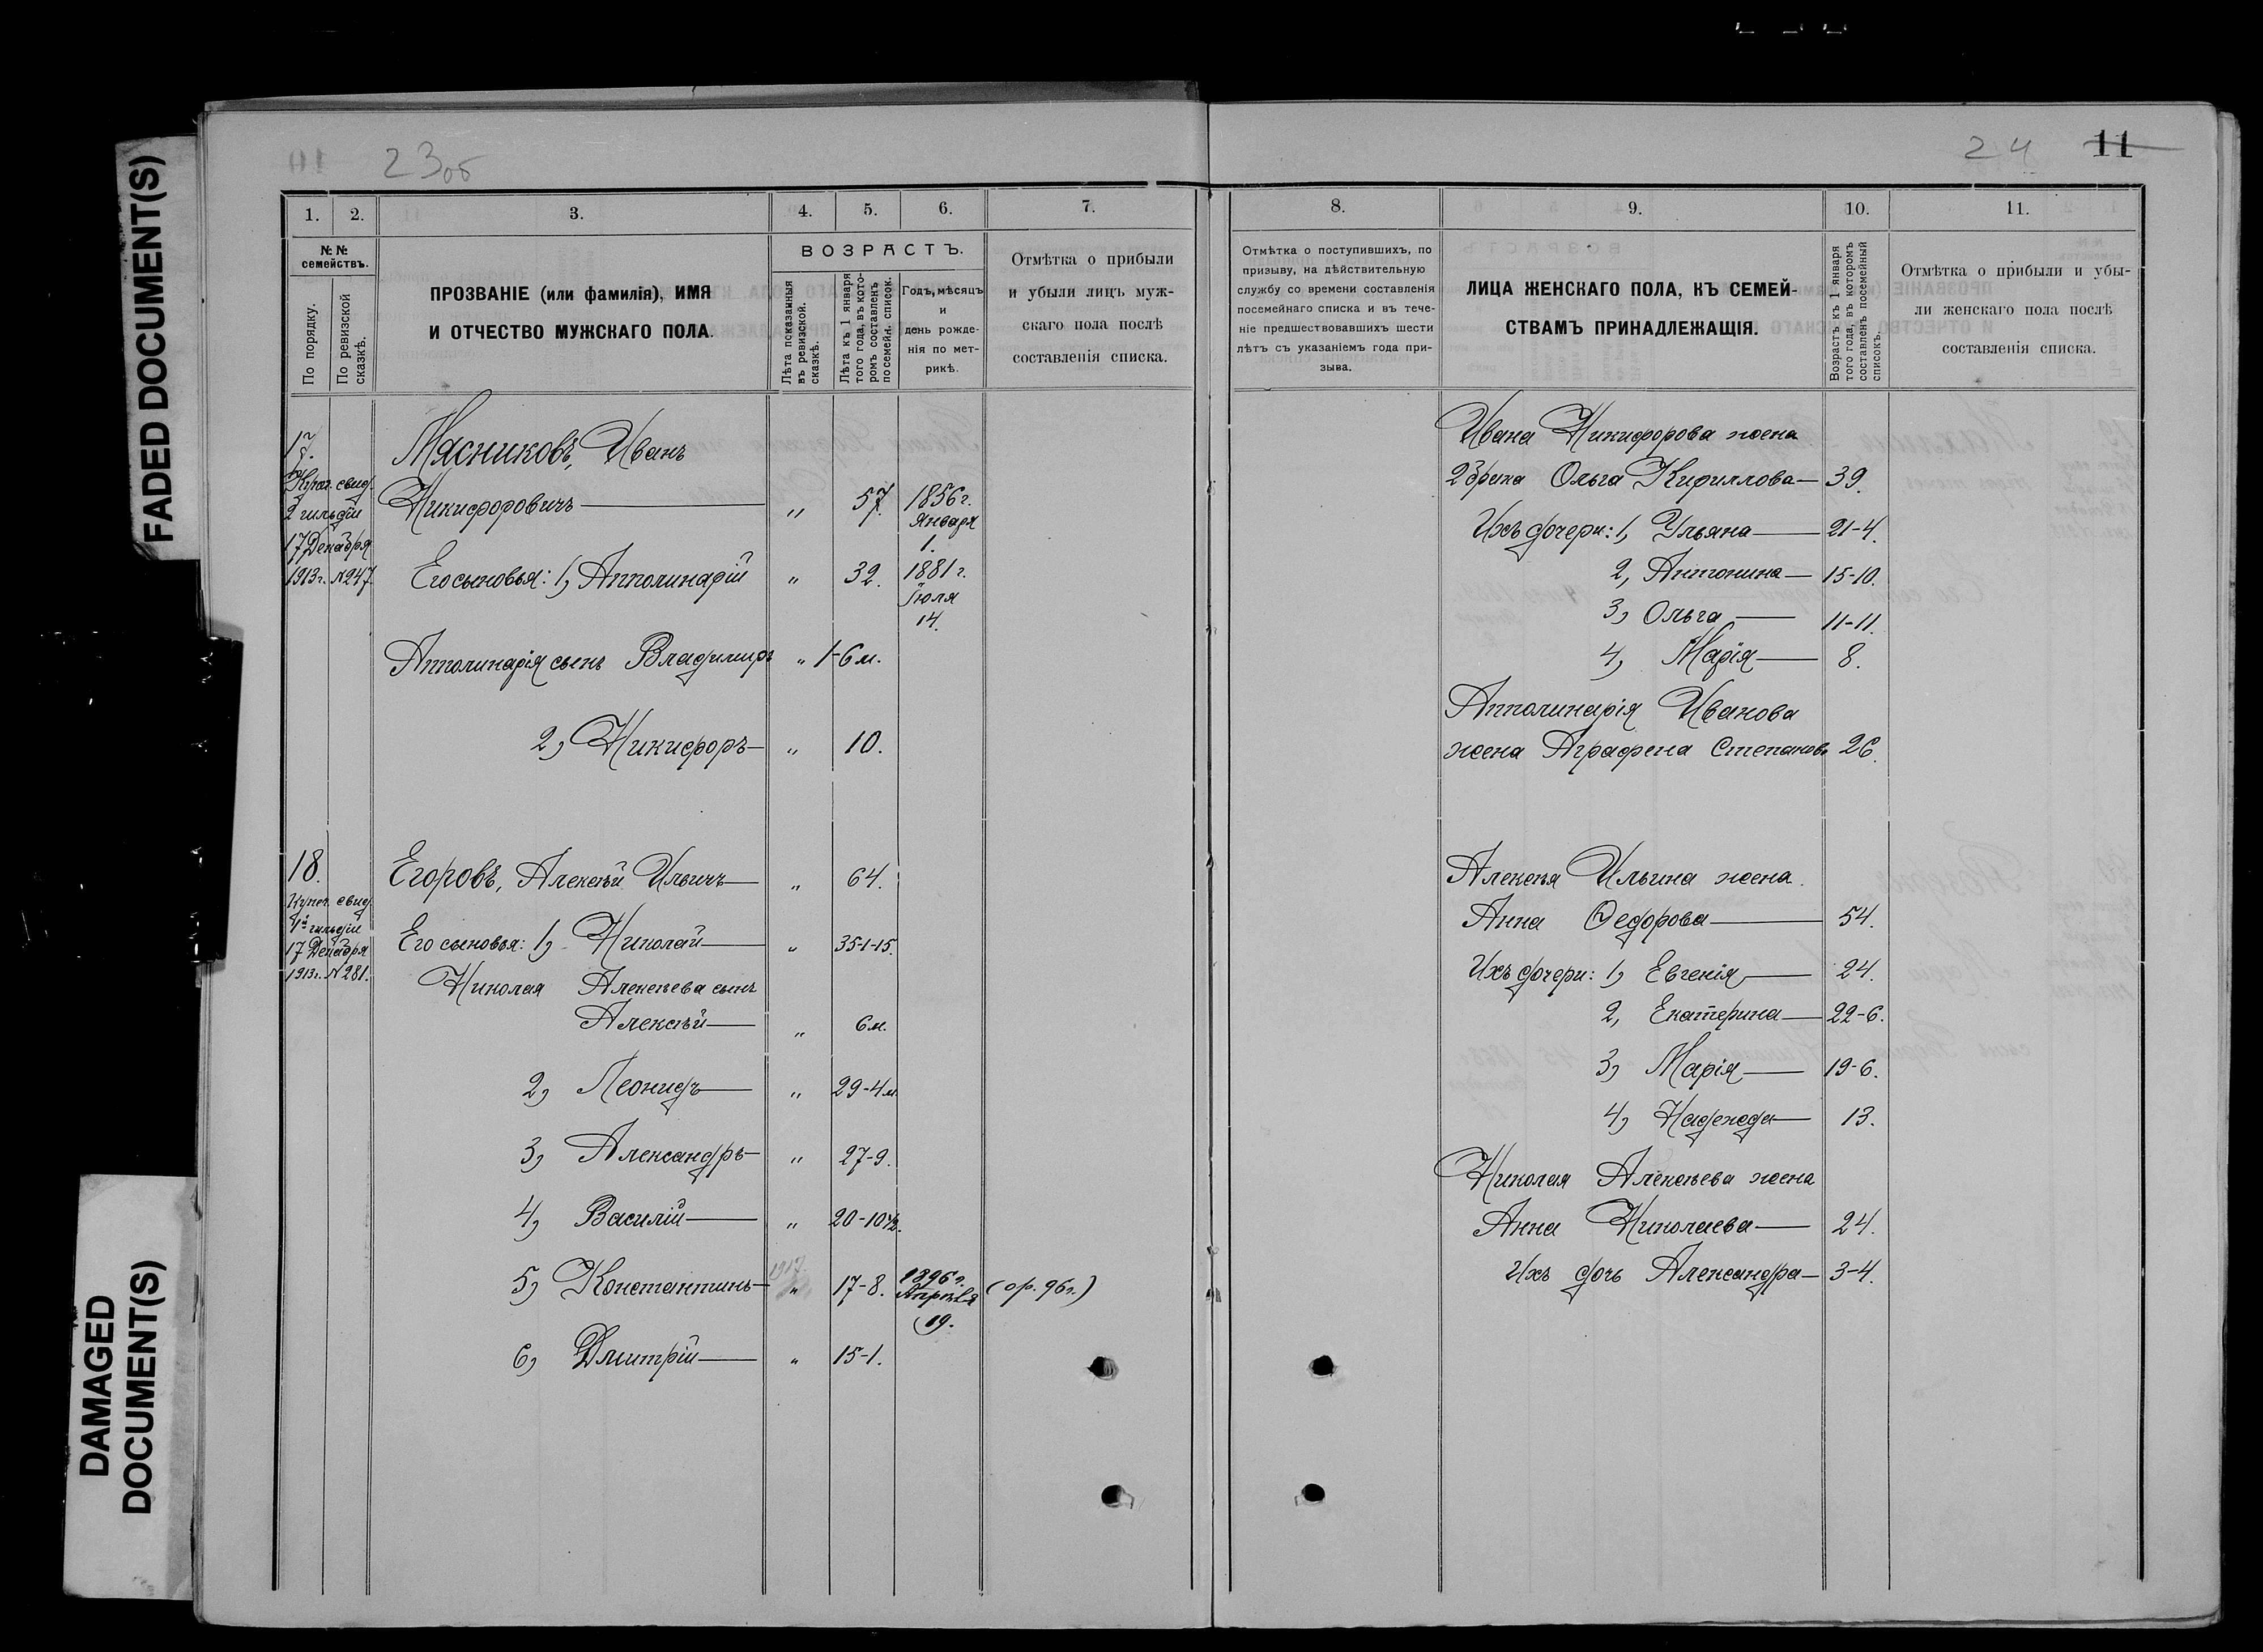 FADED DOCUMENT(S)
DAMAGED
DOCUMENT(S)
23об
24 11
1. 2. 3. 4. 5. 6. 7.
№ №
семействъ.
По порядку.
По ревизской
сказкѣ.
ПРОЗВАНІЕ (или фамилія), ИМЯ
И ОТЧЕСТВО МУЖСКАГО ПОЛА.
ВОЗРАСТЪ.
Лѣта показанныя
въ ревизской.
сказкѣ.
Лѣта къ 1 января
того года, въ кото-
ромъ составленъ
посемейн. список.
Годъ, мѣсяцъ
и
день рожде-
нія по мет-
рикѣ.
Отмѣтка о прибыли
и убыли лицъ муж-
скаго пола послѣ
составленія списка.
17.
Купеч. свид.
2 гильдіи
17 Декабря
1913г. №247
Мясниковъ, Иванъ
Никифоровичъ — „ 57. 1856 г.
Января
1.
Его сыновья: 1, Апполинарій „ 32. 1881 г.
Іюля
14.
Апполинарія сынъ Владимиръ „ 1-6 м.
2, Никифоръ — „ 10.
18.
Купеч. свид.
гильдіи
17 Декабря
1913г. №281.
Егоровъ, Алексѣй Ильичъ — „ 64.
Его сыновья: 1, Николай — „ 35-1-15.
Николая Алексѣева сынъ
Алексѣй — „ 6 м.
2, Леонидъ — „ 29-4 м.
3, Александръ — „ 27-9.
4, Василій — „ 20-10½.
5, Константинъ — 1917. „ 17-8. 1896 г. (ор. 96 г.)
Апрѣля
19.
6, Дмитрій — „ 15-1.
8. 9. 10. 11.
Отмѣтка о поступившихъ, по
призыву, на дѣйствительную
службу со времени составленія
посемейнаго списка и въ тече-
ніе предшествовавшихъ шести
лѣтъ съ указаніемъ года при-
зыва.
ЛИЦА ЖЕНСКАГО ПОЛА, КЪ СЕМЕЙ-
СТВАМЪ ПРИНАДЛЕЖАЩІЯ.
Возрастъ къ 1 января
того года, въ которомъ
составленъ посемейный
списокъ.
Отмѣтка о прибыли и убы-
ли женскаго пола послѣ
составленія списка.
Ивана Никифорова жена
2 брака Ольга Кириллова — 39.
Ихъ дочери: 1, Ульяна — 21-4.
2, Антонина — 15-10.
3, Ольга — 11-11.
4, Марія — 8.
Апполинарія Иванова
жена Аграфена Степанова 26.
Алексѣя Ильина жена
Анна Ѳедорова — 54.
Ихъ дочери: 1, Евгенія — 24.
2, Екатерина — 22-6.
3, Марія — 19-6.
4, Надежда — 13.
Николая Алексѣева жена
Анна Николаева — 24.
Ихъ дочь Александра — 3-4.